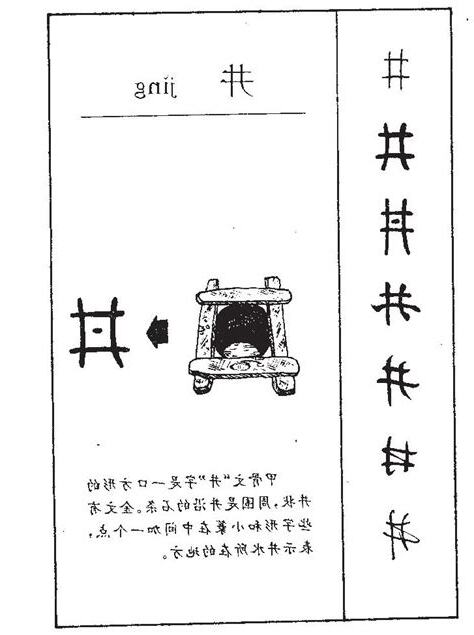 井 jǐng
甲骨文“井”字是一口方形的
井状,周围是井沿的石条。金文有
些字形和小篆在中间加一个点,
表示井水所在的地方。